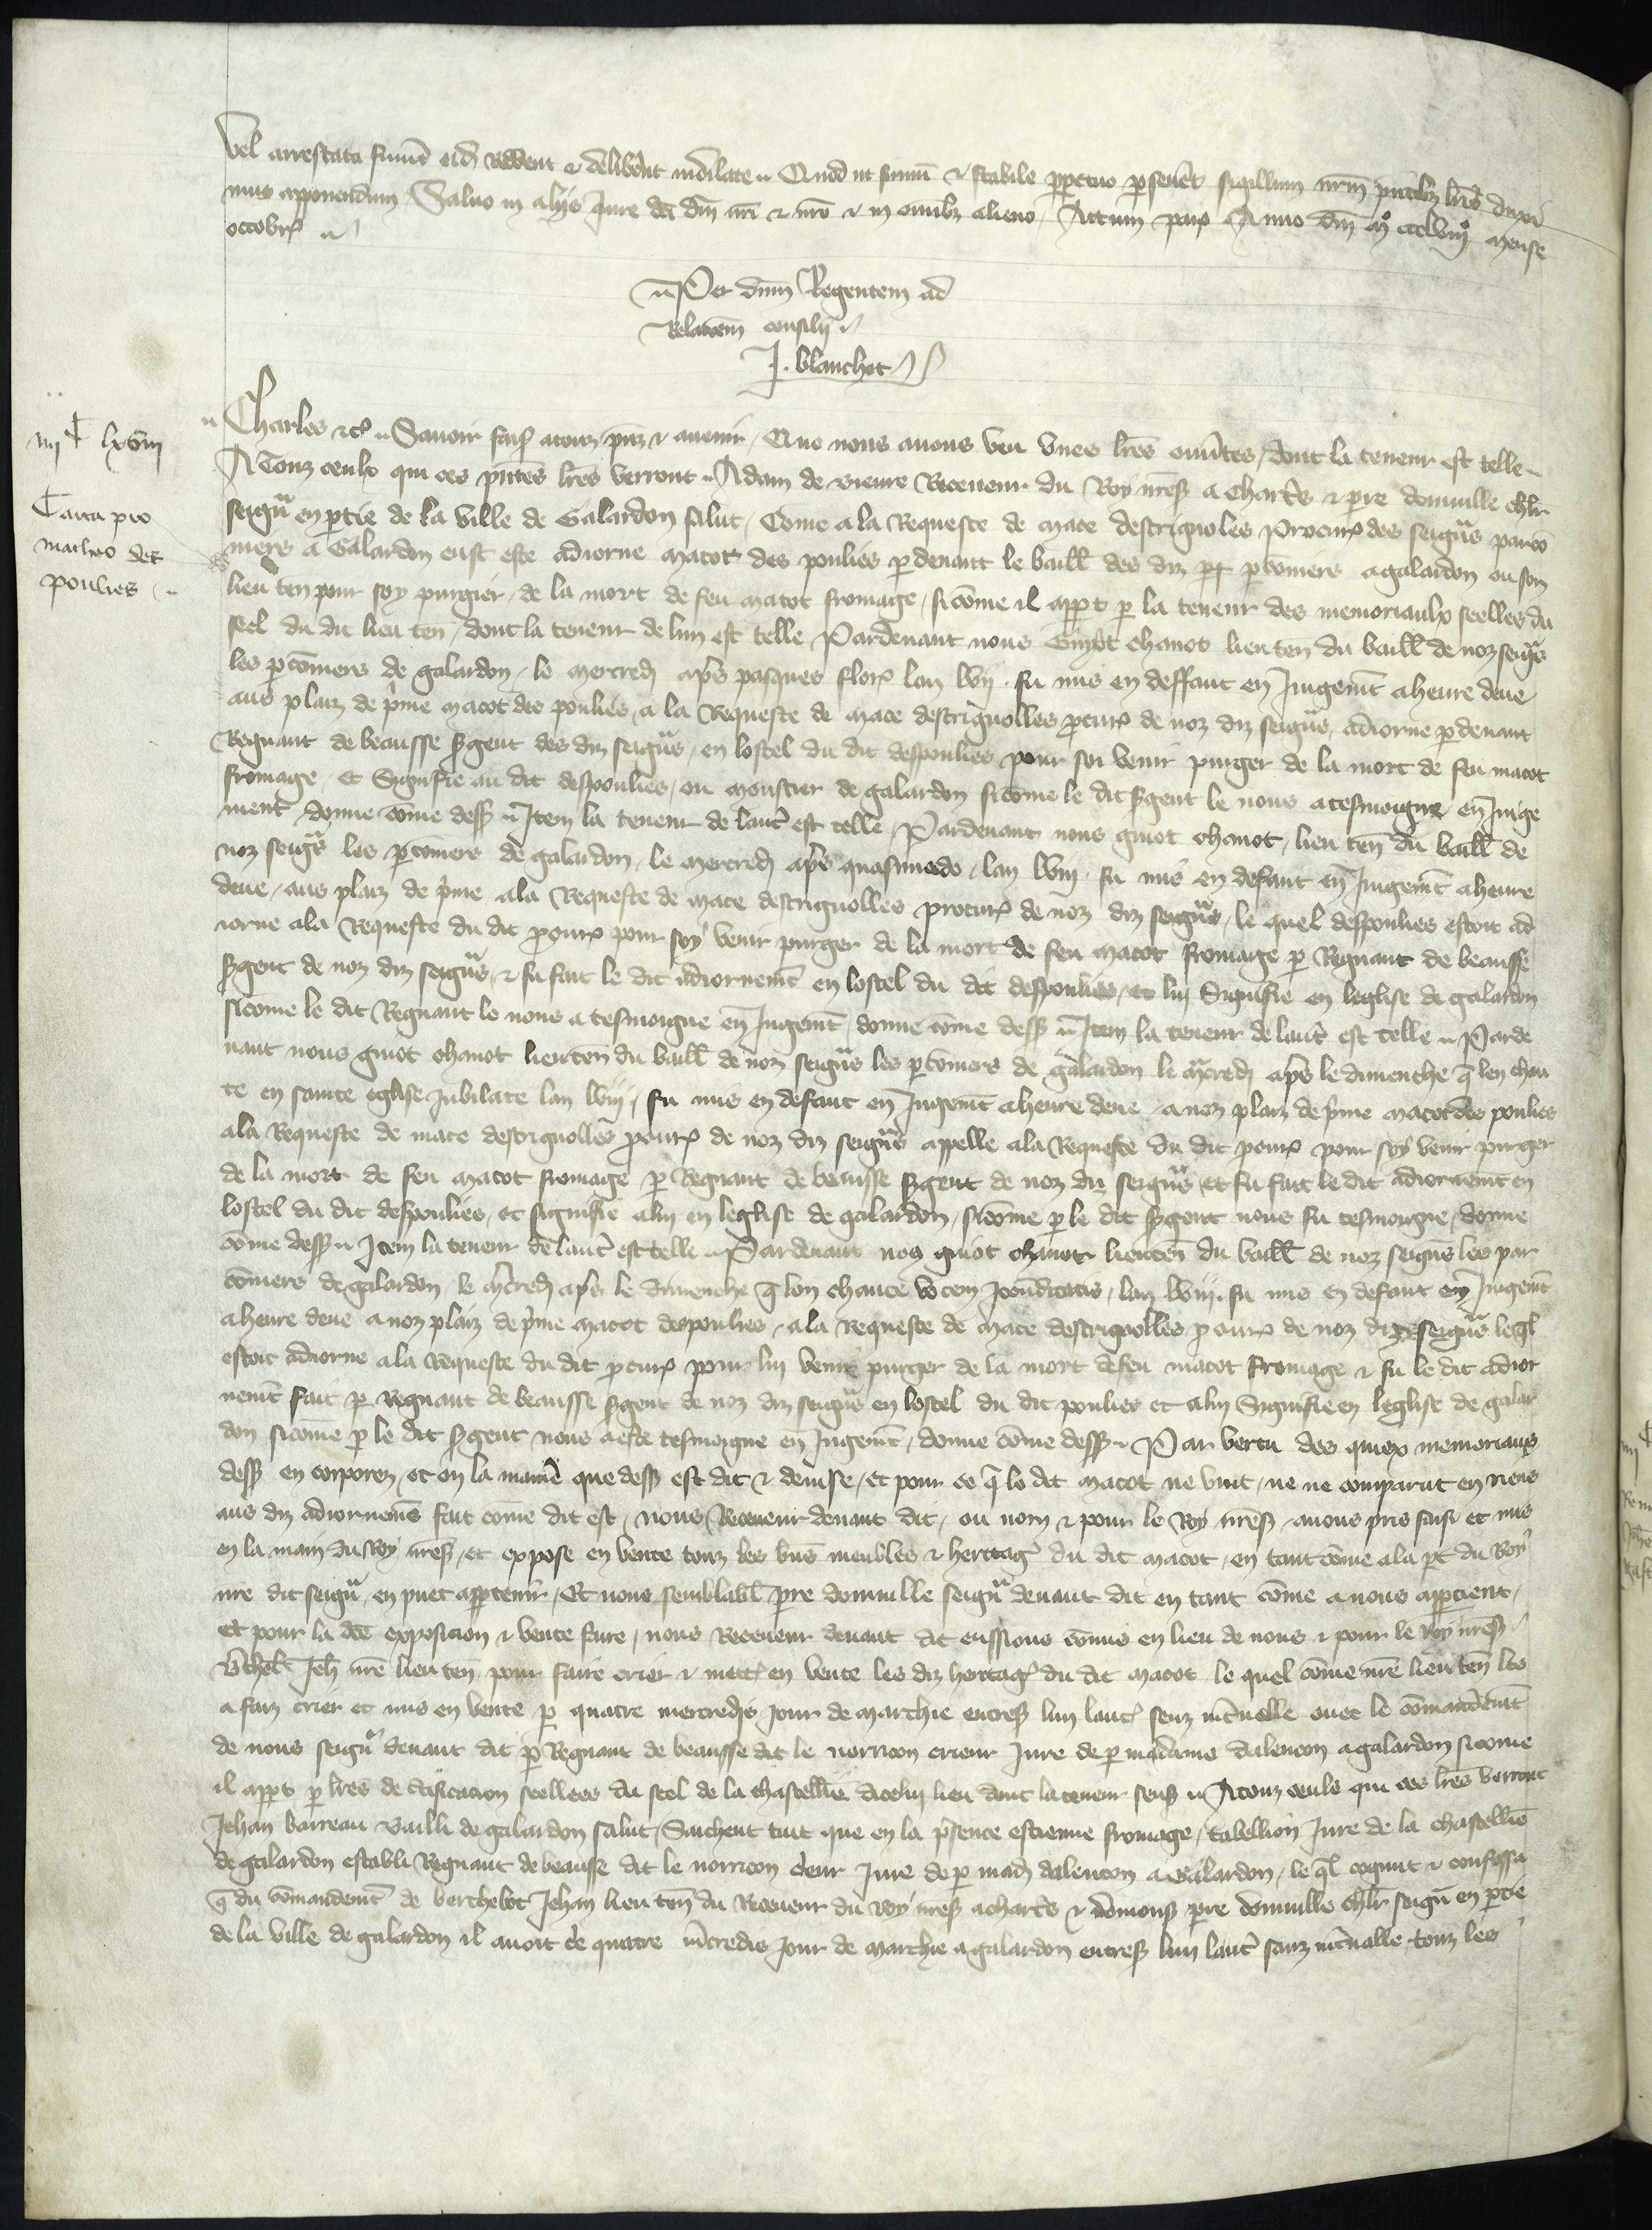 vel arrestata fuerint eidem reddent et deliberent indilate. Quod ut firmum et stabile perpetuo perseveret sigillum nostrum presentibus litteris duxi
mus apponendum Salvo in aliis Jure dicti domini nostri et nostro et in omnibus alieno. Actum parisius Anno domini mº cccLviijº mense
octobris
Per dominum Regentem ad
Relacionem consilij
J. blanchet
iiijC lxviij
Carta pro
matheo des
poulies
Charles etc. Savoir faisons a touz presens et avenir, Que nous avons veu unes lettres ouvertes, dont la teneur est telle
A Touz ceulx qui ces presentes lettres verront Adam de Receveur du Roy nostre sire a Chartres et pierre domville chevalier
seigneur en partie de la ville de Galardon salut, Come a la Requeste de mace destrignoles Procureur des seigneurs parco
niers a Galardon eust este adiorne macot des poulies par devant le bailli des diz parconiers a galardon ou son
lieu tenant pour soy purgier de la mort de feu macot fromage, si come il appert par la teneur des memoriaulx seelles du
seel du dit lieu tenant, dont la teneur de lun est telle Pardevant nous Guiot chanot lieutenant du bailli de noz seigneurs
les parconniers de galardon, le mercredi apres pasques flories lan lvij. fu mis en deffaut en Jugement a heure deue
aus plaiz de prime macot des poulies, a la Requeste de mace destrignolles procureur de noz diz seigneurs, adiorne par devant
Regnaut de beausse sergent des diz seigneurs, en lostel du dit despoulies pour soi venir purger de la mort de feu macot
fromage, et Signifie au dit despoulies, ou moustier de galardon si come le dit sergent le nous a tesmoigne en Juge
ment, donne come dessus Item la teneur de lautre est telle, Pardevant nous guiot chanot, lieu tenant du bailli de
noz seigneurs les parconiers de galardon, le mercredi apres quasimodo, lan lviij. fu mis en defaut en Jugement a heure
deue, aus plaiz de prime a la Requeste de mace destrignolles procureur de noz diz seigneurs, le quel despoulies estoit ad
iorne a la Requeste du dit procureur pour soy venir purger de la mort de feu macot fromage par Regnaut de beausse
sergent de noz diz seigneurs, et fu fait le dit adiornement en lostel du dit despoulies, et lui Signifie en leglise de galardon
si come le dit Regnaut le nous a tesmoigne en Jugement, donne come dessus Item la teneur de lautre est telle Parde
vant nous guiot chanot lieutenant du bailli de noz seigneurs les parconiers de galardon le mercredi apres le dimenche que len chan
te en sainte eglise Jubilate lan lviij, fu mis en defaut en Jugement a heure deue, a noz plaiz de prime macot des poulies
a la Requeste de mace destrignolles procureur de noz diz seigneurs appelle a la Requeste du dit procureur pour soy venir purger
de la mort de feu macot fromage par Regnaut de beausse sergent de noz diz seigneurs et fu fait le dit adiornement en
lostel du dit despoulies, et signifie a lui en leglise de galardon, si come par le dit sergent nous fu tesmoigne, donne
come dessus Item la teneur de lautre est telle Pardevant nous guiot chanot lieutenant du bailli de noz seigneurs les par
coniers de galardon, le mercredi apres le dimenche que lon chante vocem Jocunditatis, lan lviij. fu mis en defaut en Jugement
a heure deue a noz plaiz de prime macot despoulies, a la requeste de mace destrignolles procureur de noz diz seigneurs lequel
estoit adiorne a la requeste du dit procureur pour lui venir purger de la mort defeu macot fromage et fu le dit adior
nement fait par Regnaut de beausse sergent de noz diz seigneurs en lostel du dit poulies et a lui Signifie en leglise de galar
don si come par le dit sergent nous a este tesmoigne en Jugement, donne come dessus Par vertu des quiex memoriaus
dessus en corporez, et en la maniere que dessus est dit et devise, et pour ce que le dit macot ne vint, ne ne comparut en riens
aus diz adiornemens fait come dit est, nous Receveur devant dit, ou nom et pour le Roy nostre sire, avons pris saisi et mis
en la main du Roy nostre sire, et expose en vente touz les biens meubles et heritages du dit macot, en tant come a la part du Roy
nostre dit seigneur, en puet appartenir, Et nous semblablement pierre domville seigneur devant dit en tant come a nous appartient,
et pour la dite exposicion et vente faire, nous Receveur devant dit eussions commis en lieu de nous et pour le Roy nostre sire
Berthelot Jehan nostre lieu tenant pour faire crier et mettre en vente les diz heritages du dit macot, le quel come nostre lieu tenant les
a faiz crier et mis en vente par quatre mercredis Jour de marchie entresuivant lun lautre senz intervalle avec le commandement
de nous seigneur devant dit par Regnaut de beausse dit le norricon crieur Jure de par madame dalencon a galardon si come
il appert par lettres de certificacion scellees du seel de la Chastellenie dicelui lieu dont la teneur sensuit A touz ceuls qui ces lettres verront
Jehan barreau Bailli de galardon salut, Saichent tuit que en la presence estienne fromage, tabellion Jure de la chastellenie
de galardon establi Regnaut de beausse dit le norricon crieur Jure de par madame dalencon a Galardon, le quel cognut et confessa
que du commandement de berthelot Jehan lieu tenant du Receveur du Roy nostre sire a chartres et de monsire pierre domville chevalier seigneur en partie
de la ville de galardon il avoit crie quatre mercredis Jour de marchie a galardon entresuivant lun lautre sanz intervalle touz les